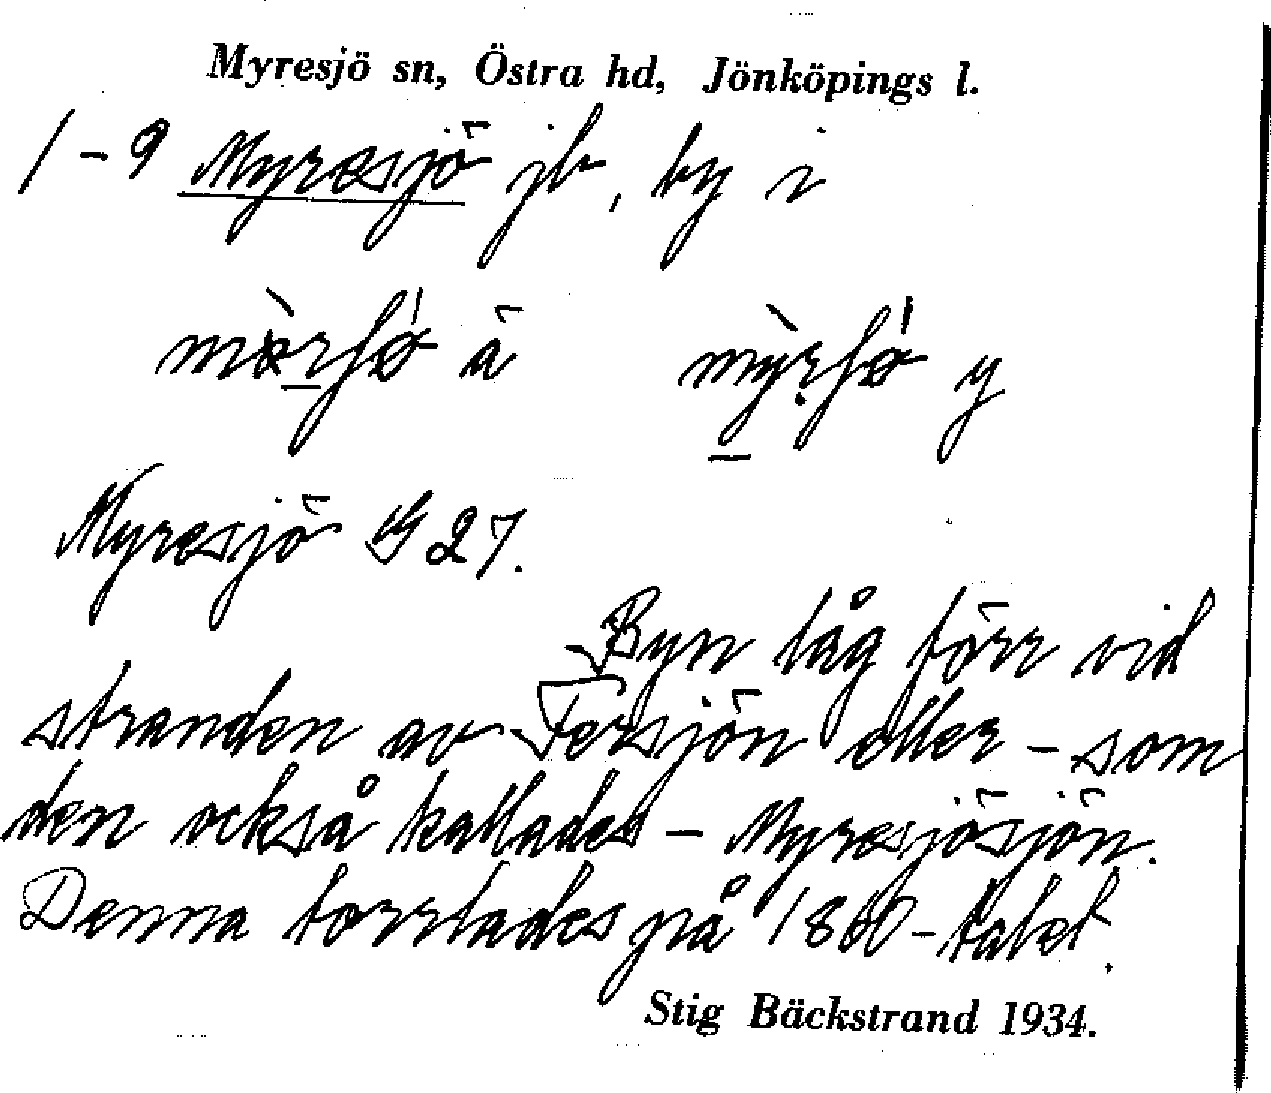 Myresjö sn, Östra hd, Jönköpings l.
1-9 Myresjö jb, by i
Myresjö G 27.
Byn låg förr vid
stranden av Försjön eller – som
den också kallades – Myresjösjön.
Denna torrlades på 1860-talet.
Stig Bäckstrand 1934.